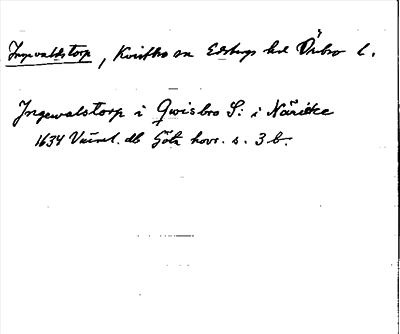 Ingevaldstorp, Kvistbro sn Edsbergs hd Örebro l.
Ingewalstorp i Qwisbro S: i Närike
1634 db Göta hovr. s. 3 b.